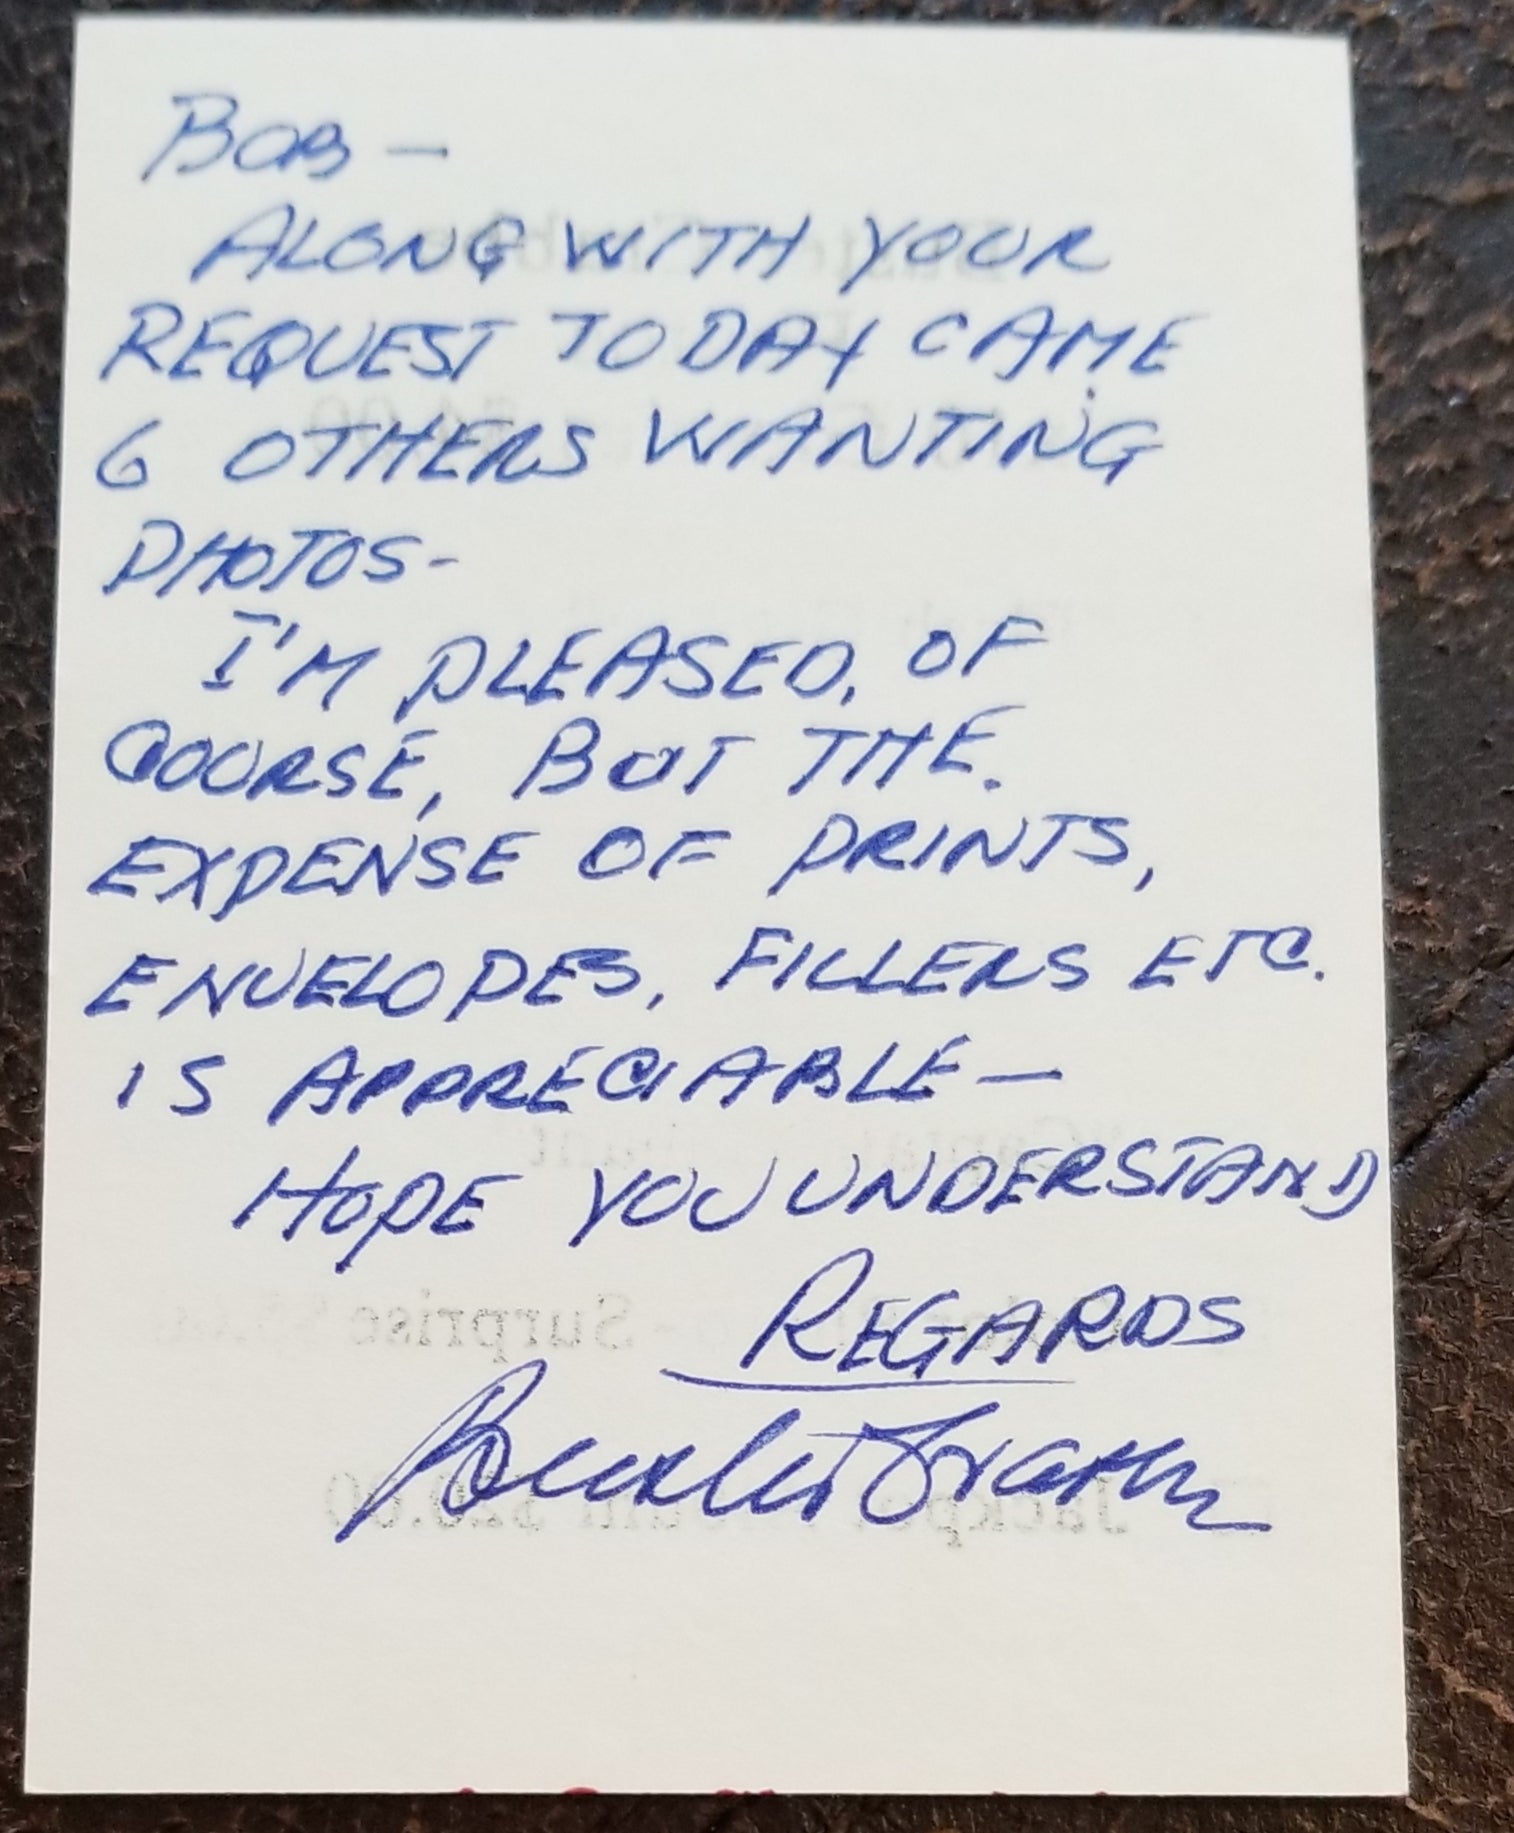 BOB —
ALONG WITH YOUR
REQUEST TODAY CAME
6 OTHERS WANTING
PHOTOS-
I'M PLEASED, OF
COURSE, BUT THE
EXPENSE OF PRINTS,
ENVELOPES, FILLERS ETC.
IS APPRECIABLE —
HOPE YOU UNDERSTAND
REGARDS
Surprise
Jackpot